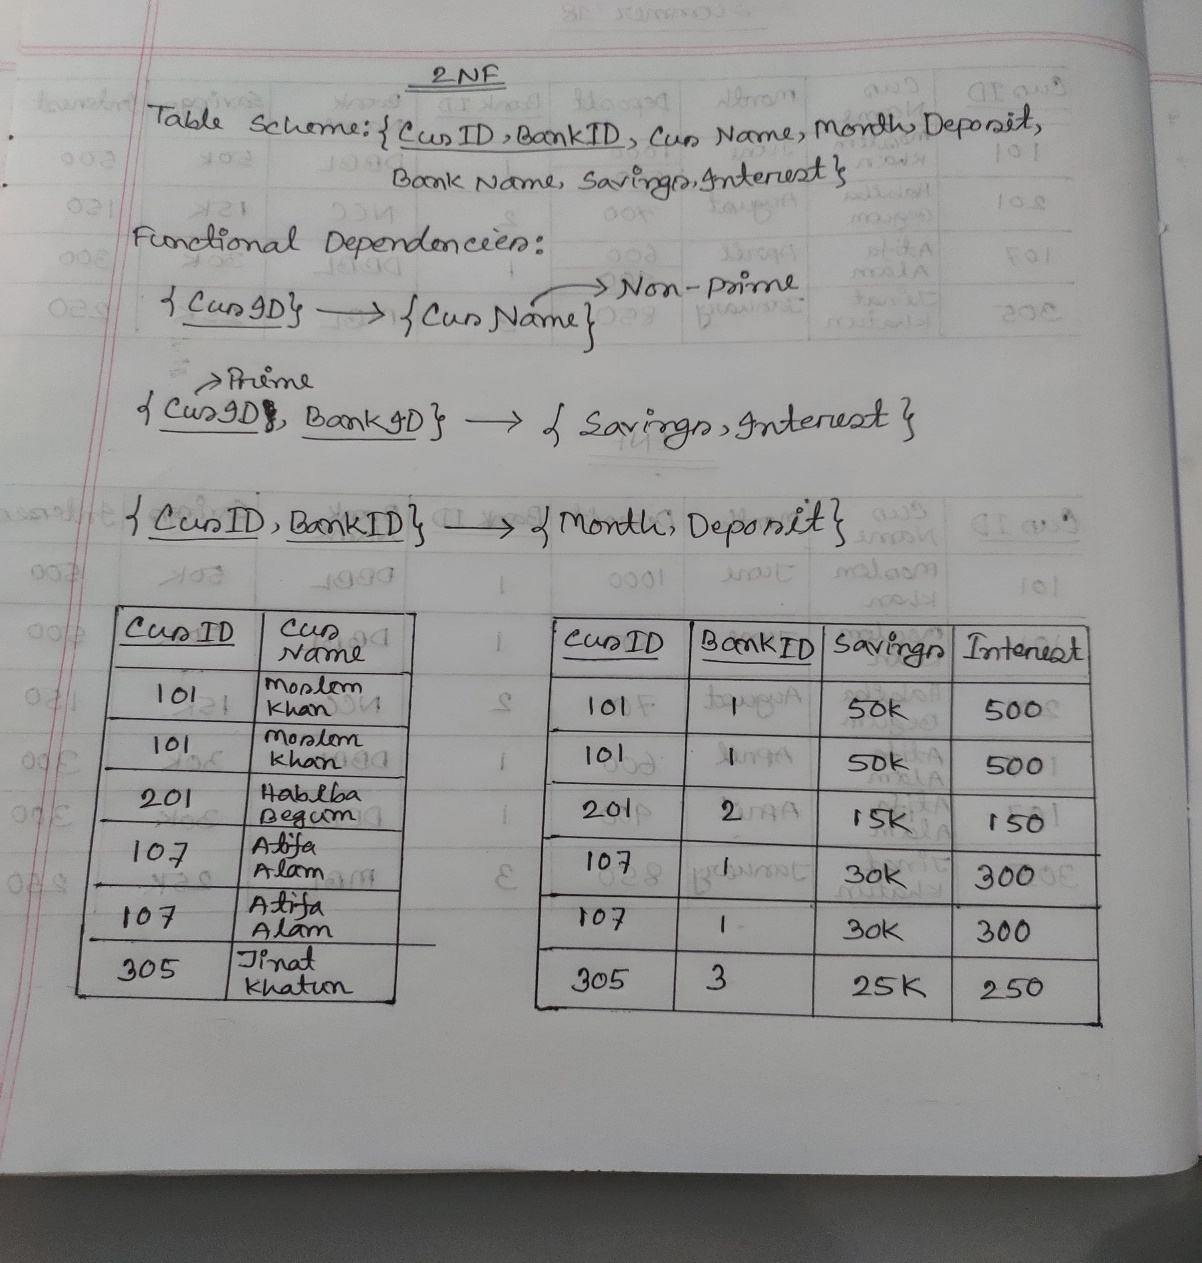 2NF
Table Scheme: { Cus ID, Bank ID, Cus Name, Month, Deposit,
Bank Name, Savings, Interest }
Functional Dependencies:
{ Cus ID } → { Cus Name }
→ Non-prime
→ Prime
{ Cus ID, Bank ID } → { Savings, Interest }
{ Cus ID, Bank ID } → { Month, Deposit }
Cus ID | Cus Name
101 | Moslem Khan
101 | Moslem Khan
201 | Habiba Begum
107 | Atifa Alam
107 | Atifa Alam
305 | Jinat Khatun
Cus ID | Bank ID | Savings | Interest
101 | 1 | 50K | 500
101 | 1 | 50K | 500
201 | 2 | 15K | 150
107 | 1 | 30K | 300
107 | 1 | 30K | 300
305 | 3 | 25K | 250